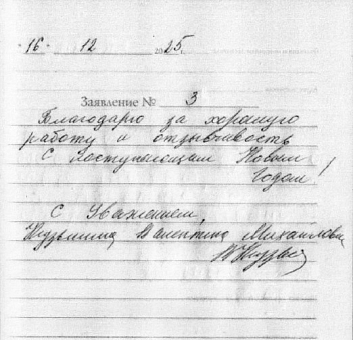 16 12 2025.
Заявление № 3
Благодарю за хорошую
работу и отзывчивость
С Наступающим Новым
Годом!
С Уважением,
Валентина Михайловна